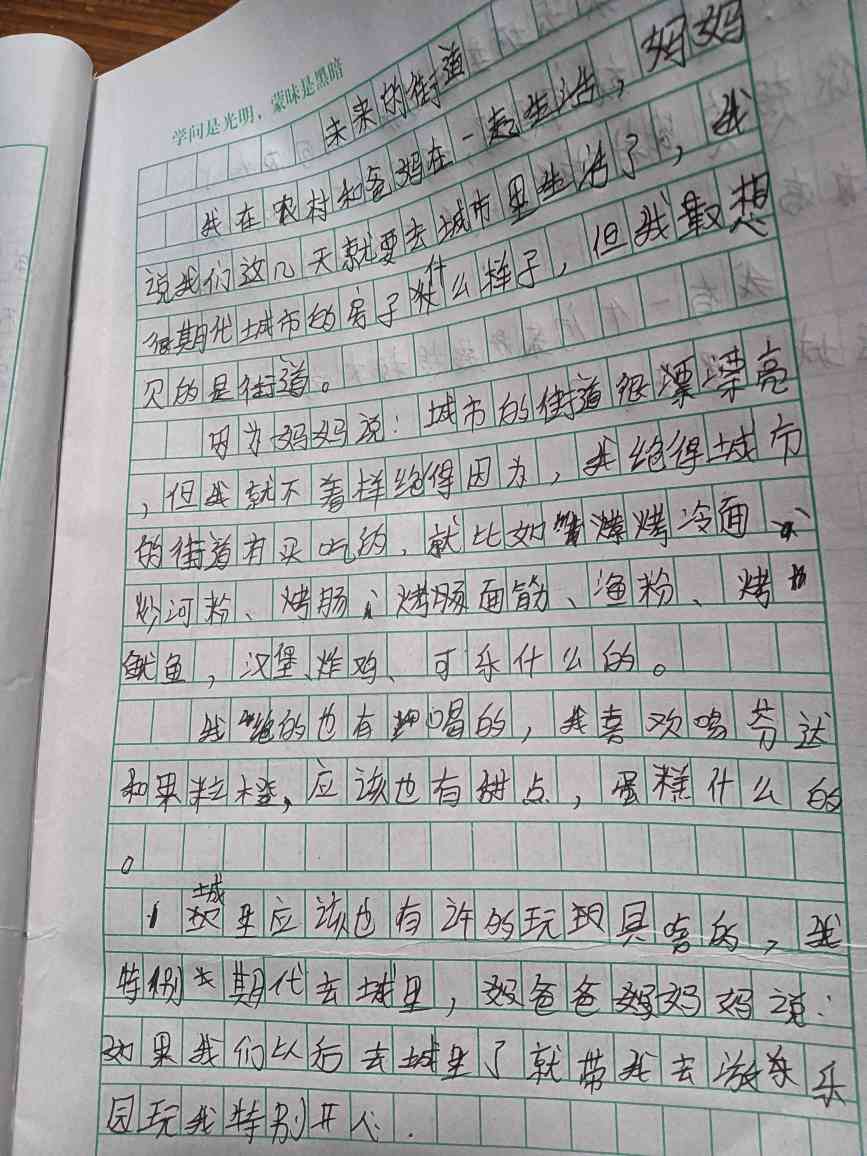 学问是光明，蒙昧是黑暗
未来的街道
我在农村和爸妈在一起生活，妈妈
说我们这几天就要去城市里生活了，我
很期代城市的房子什么样子，但我最想
见的是街道。
因为妈妈说：城市的街道很漂漂亮
，但我就不着样绝得因为，我绝得城市
的街道有买吃的，就比如烤冷面、
炒河粉、烤肠、烤肠面筋、渔粉、烤
鱿鱼，汉堡、炸鸡、可乐什么的。
我绝的也有喝的，我喜欢喝芬达
和果粒橙，应该也有甜点，蛋糕什么的
。
城里应该也有许的玩具啥的，我
特别期代去城里，爸爸妈妈说：
如果我们以后去城里了就带我去游乐
园玩我特别开心.